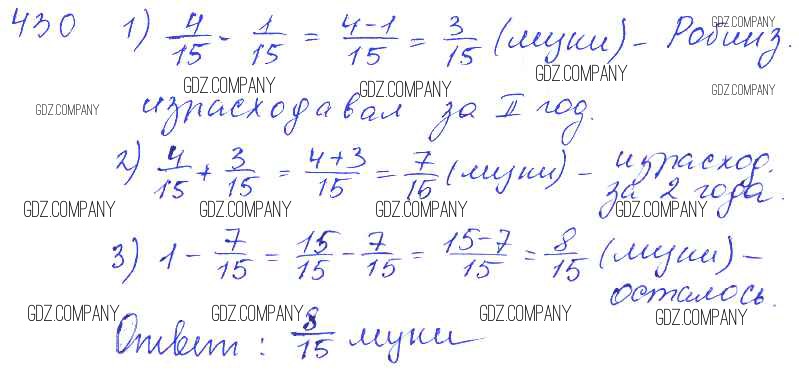 430 1) 4/15 - 1/15 = 4-1/15 = 3/15 (муки) - Робинз.
GDZ.COMPANY
GDZ.COMPANY GDZ.COMPANY GDZ.COMPANY GDZ.COMPANY
GDZ.COMPANY
израсходавал за II год.
GDZ.COMPANY
2) 4/15 + 3/15 = 4+3/15 = 7/15 (муки) - израсход.
за 2 года.
GDZ.COMPANY GDZ.COMPANY GDZ.COMPANY GDZ.COMPANY
3) 1 - 7/15 = 15/15 - 7/15 = 15-7/15 = 8/15 (муки) -
осталось.
GDZ.COMPANY GDZ.COMPANY GDZ.COMPANY GDZ.COMPANY
Ответ: 8/15 муки